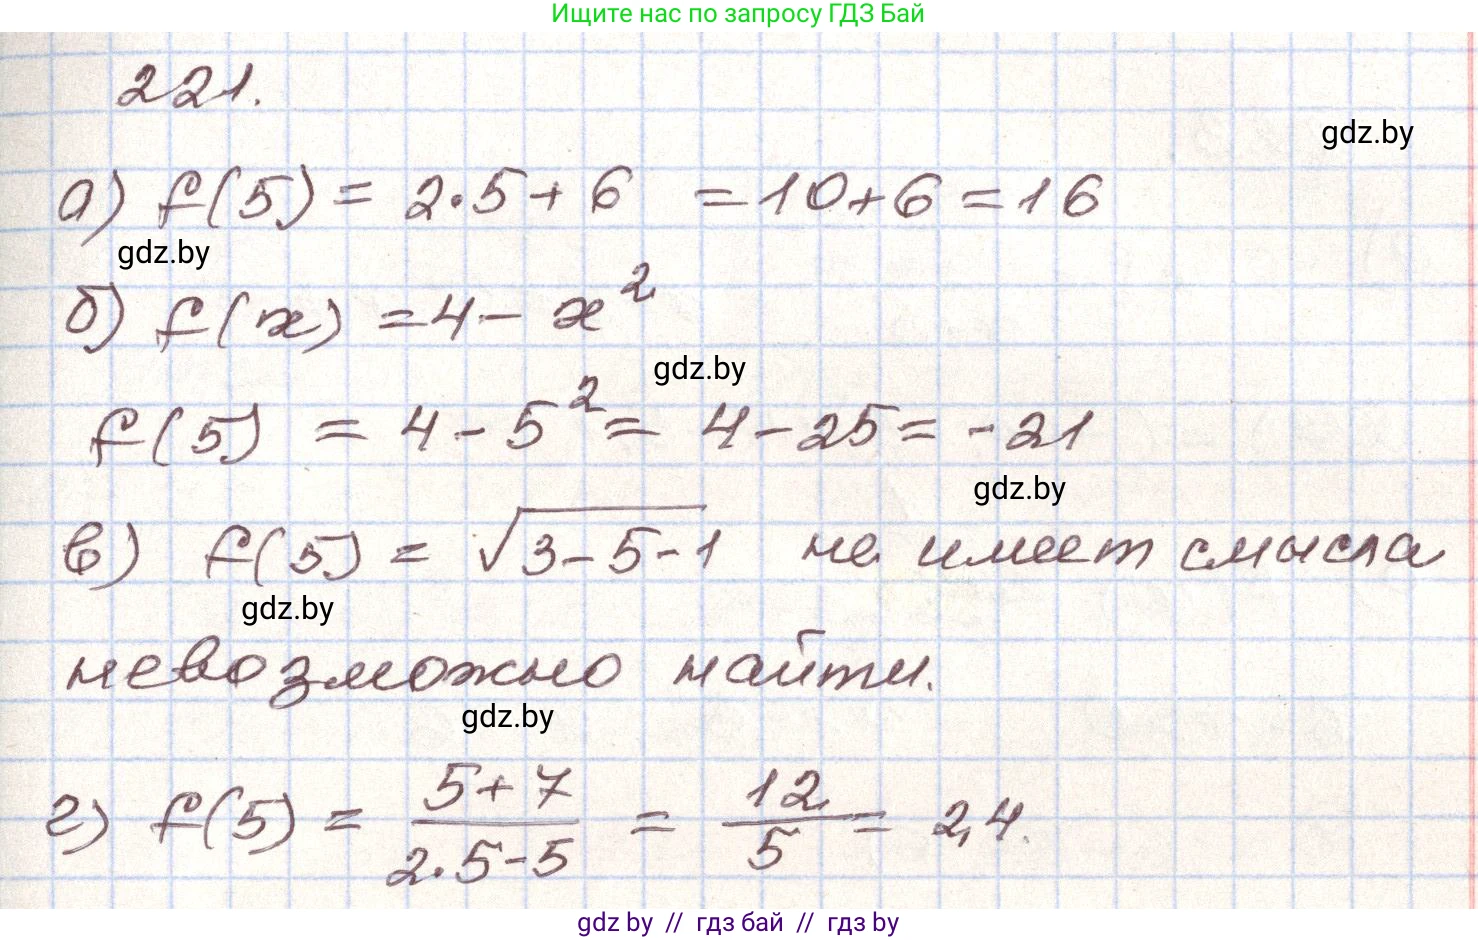 Ищите нас по запросу ГДЗ Бай
221.
gdz.by
а) f(5) = 2·5+6 =10+6=16
gdz.by
б) f(x) =4-x²
gdz.by
f(5) = 4-5²= 4-25= -21
gdz.by
в) f(5) = √3-5-1 не имеет смысла
gdz.by
невозможно найти.
gdz.by
г) f(5) = (5+7)/(2·5-5) = 12/5 = 2,4.
gdz.by // гдз бай // гдз by